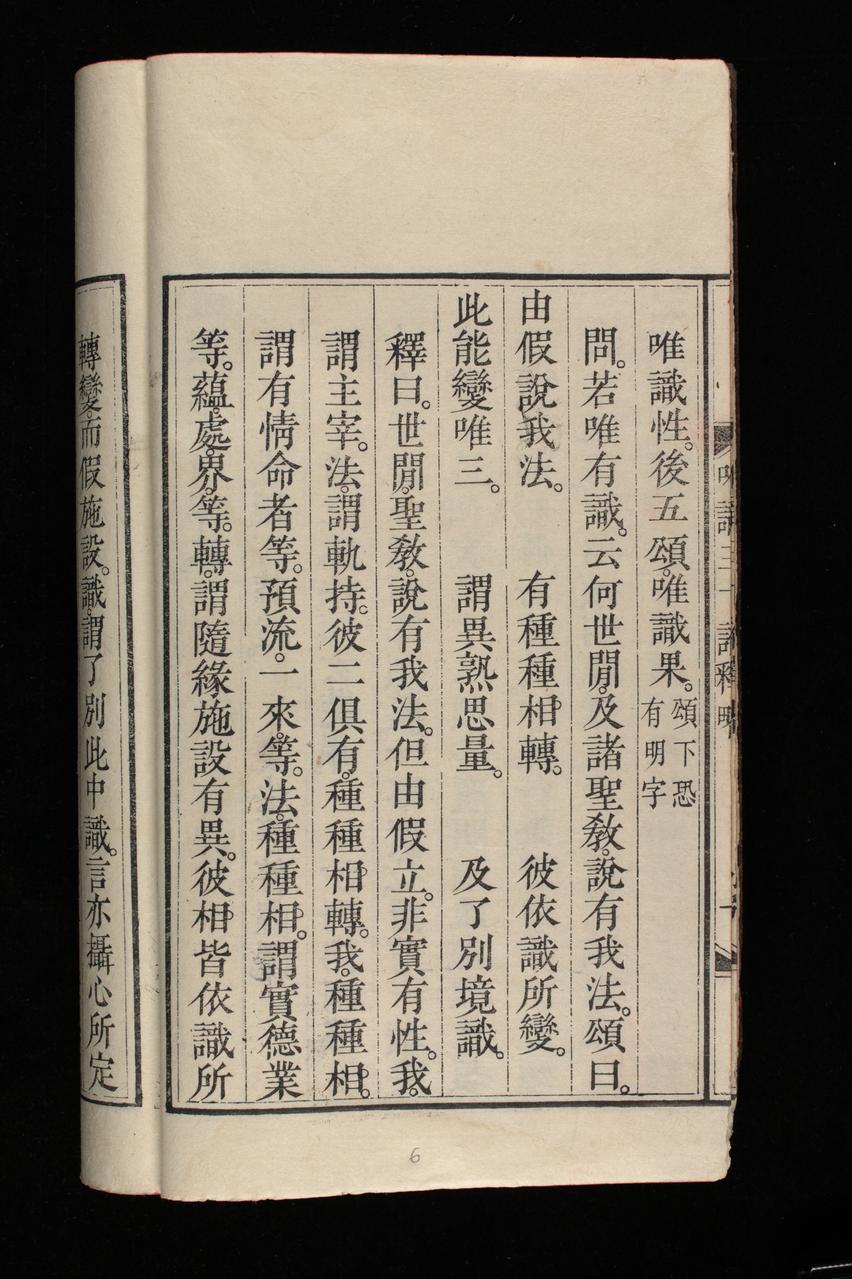 唯識性。後五頌。唯識果。頌下恐有明字
問。若唯有識。云何世間。及諸聖教。說有我法。頌曰。
由假說我法。　有種種相轉。　彼依識所變。
此能變唯三。　謂異熟思量。　及了別境識。
釋曰。世間。聖教。說有我法。但由假立。非實有性。我。
謂主宰。法。謂軌持。彼二俱有。種種相轉。我。種種相。
謂有情命者等。預流。一來。等。法。種種相。謂實德業
等。蘊。處。界。等。轉。謂隨緣施設有異。彼相皆依識所
轉變。而假施設。識。謂了別此中識。言亦攝心所定
6